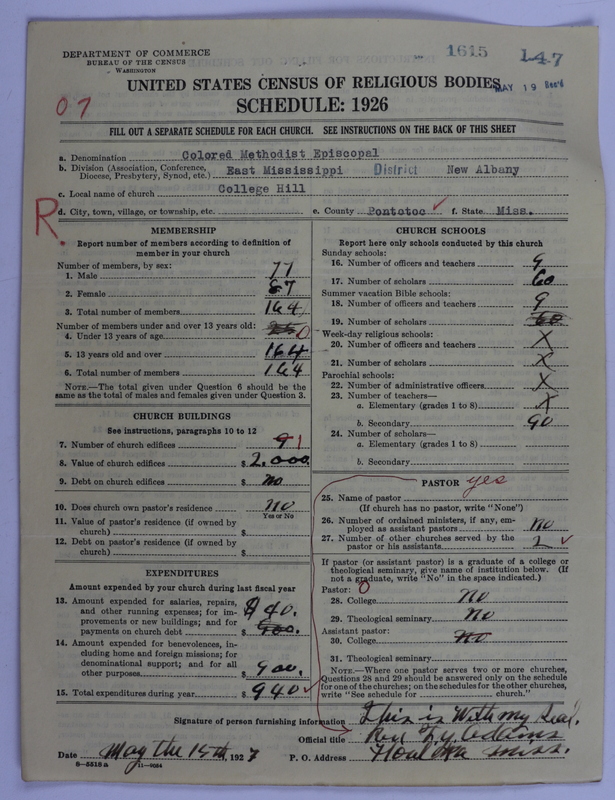 DEPARTMENT OF COMMERCE
BUREAU OF THE CENSUS
WASHINGTON
1615
147
MAY 19 Rec'd
07
UNITED STATES CENSUS OF RELIGIOUS BODIES
SCHEDULE: 1926
FILL OUT A SEPARATE SCHEDULE FOR EACH CHURCH. SEE INSTRUCTIONS ON THE BACK OF THIS SHEET
a. Denomination Colored Methodist Episcopal
b. Division (Association, Conference, Diocese, Presbytery, Synod, etc.) East Mississippi District New Albany
c. Local name of church College Hill
R.
d. City, town, village, or township, etc. e. County Pontotoc f. State Miss.
MEMBERSHIP
Report number of members according to definition of
member in your church
Number of members, by sex:
1. Male 77
2. Female 87
3. Total number of members 164
Number of members under and over 13 years old:
4. Under 13 years of age 0
5. 13 years old and over 164
6. Total number of members 164
NOTE.—The total given under Question 6 should be
same as the total of males and females given under Question 3.
CHURCH BUILDINGS
See instructions, paragraphs 10 to 12
7. Number of church edifices 1
8. Value of church edifices $ 2.000
9. Debt on church edifices $ no
10. Does church own pastor's residence no
Yes or No
11. Value of pastor's residence (if owned by
church) $
12. Debt on pastor's residence (if owned by
church) $
EXPENDITURES
Amount expended by your church during last fiscal year
13. Amount expended for salaries, repairs,
and other running expenses; for im-
provements or new buildings; and for
payments on church debt $ 40.
14. Amount expended for benevolences, in-
cluding home and foreign missions; for
denominational support; and for all
other purposes 900.
15. Total expenditures during year $ 940
CHURCH SCHOOLS
Report here only schools conducted by this church
Sunday schools:
16. Number of officers and teachers 9
17. Number of scholars 60
Summer vacation Bible schools:
18. Number of officers and teachers 9
19. Number of scholars 60
Week-day religious schools:
20. Number of officers and teachers X
21. Number of scholars X
Parochial schools:
22. Number of administrative officers X
23. Number of teachers—
a. Elementary (grades 1 to 8) X
b. Secondary 90
24. Number of scholars—
a. Elementary (grades 1 to 8)
b. Secondary
PASTOR yes
25. Name of pastor
(If church has no pastor, write "None")
26. Number of ordained ministers, if any, em-
ployed as assistant pastors no
27. Number of other churches served by the
pastor or his assistants 2
If pastor (or assistant pastor) is a graduate of a college or
theological seminary, give name of institution below. (If
not a graduate, write "No" in the space indicated.)
Pastor: 0
28. College No
29. Theological seminary No
Assistant pastor:
30. College no
31. Theological seminary
NOTE.—Where one pastor serves two or more churches,
Questions 28 and 29 should be answered only on the schedule
for one of the churches; on the schedules for the other churches,
write "See schedule for church."
Signature of person furnishing information This is With my Seal.
Official title Rev Adams
Date May the 15th, 1927 P. O. Address Houlka miss.
8—5519a 11—9084